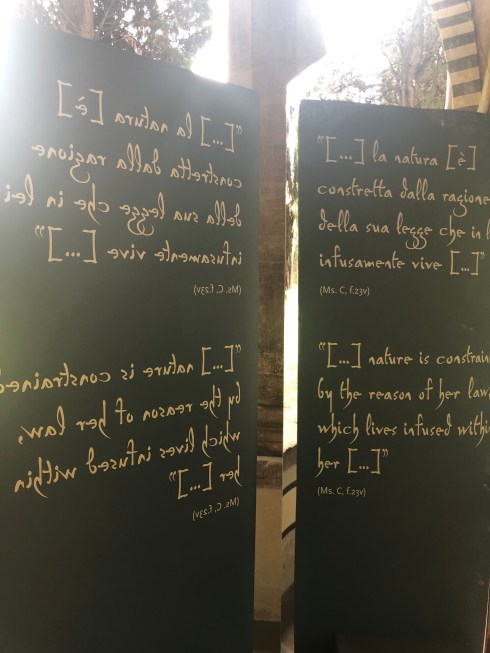 "[...] la natura [è]
constretta dalla ragione
della sua legge che in lei
infusamente vive [...]"
(Ms. C, f.23v)
"[...] nature is constrained
by the reason of her law,
which lives infused within
her [...]"
(Ms. C, f.23v)
"[...] la natura [è]
constretta dalla ragione
della sua legge che in l
infusamente vive [...]"
(Ms. C, f.23v)
"[...] nature is constrain
by the reason of her law
which lives infused withi
her [...]"
(Ms. C, f.23v)